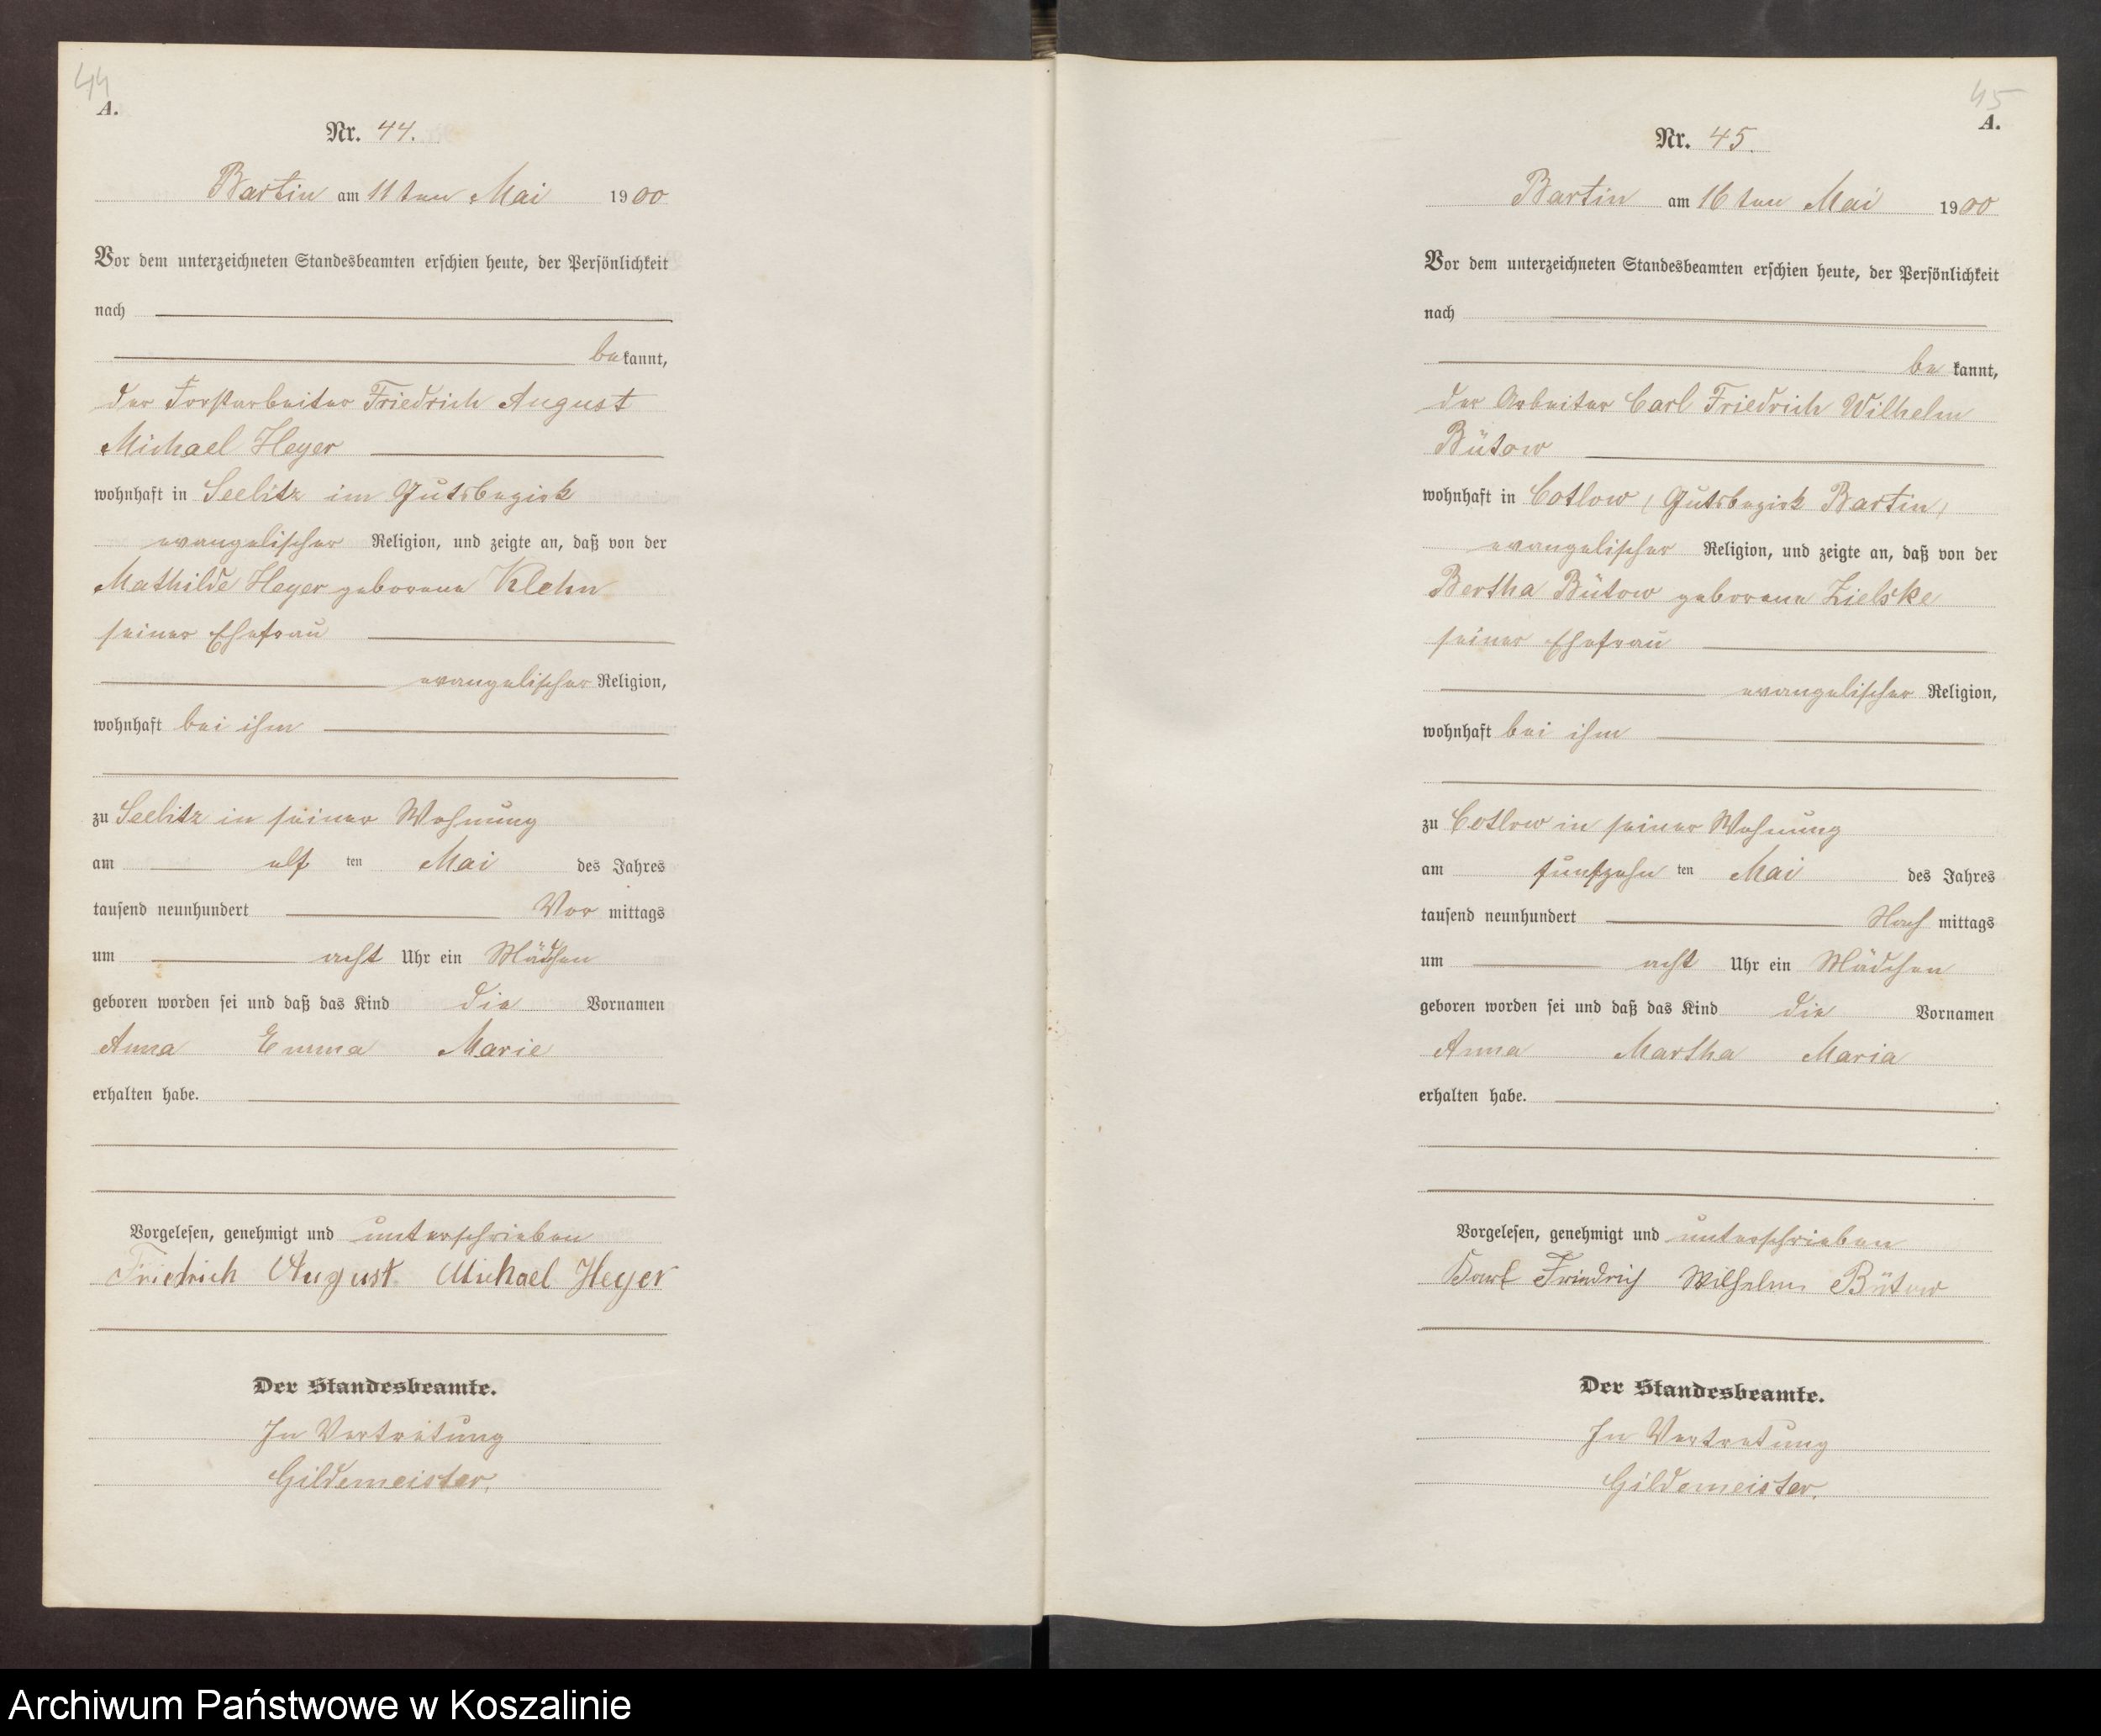 44
A.
Nr. 44.
Bartin am 11ten Mai 1900
Vor dem unterzeichneten Standesbeamten erschien heute, der Persönlichkeit
nach
bekannt,
der Forstarbeiter Friedrich August
Michael Heyer
wohnhaft in Seelitz im Gutsbezirk
evangelischer Religion, und zeigte an, daß von der
Mathilde Heyer geborene Klehn
seiner Ehefrau
evangelischer Religion,
wohnhaft bei ihm
zu Seelitz in seiner Wohnung
am elf ten Mai des Jahres
tausend neunhundert Vor mittags
um acht Uhr ein Mädchen
geboren worden sei und daß das Kind die Vornamen
Anna Emma Marie
erhalten habe.
Vorgelesen, genehmigt und unterschrieben
Friedrich August Michael Heyer
Der Standesbeamte.
In Vertretung
Gildemeister.
45
A.
Nr. 45.
Bartin am 16ten Mai 1900
Vor dem unterzeichneten Standesbeamten erschien heute, der Persönlichkeit
nach
be kannt,
der Arbeiter Carl Friedrich Wilhelm
Bütow
wohnhaft in Cotlow (Gutsbezirk Bartin)
evangelischer Religion, und zeigte an, daß von der
Bertha Bütow geborene Zielske
seiner Ehefrau
evangelischer Religion,
wohnhaft bei ihm
zu Cotlow in seiner Wohnung
am fünfzehn ten Mai des Jahres
tausend neunhundert Nach mittags
um acht Uhr ein Mädchen
geboren worden sei und daß das Kind die Vornamen
Anna Martha Maria
erhalten habe.
Vorgelesen, genehmigt und unterschrieben
Karl Friedrich Wilhelm Bütow
Der Standesbeamte.
In Vertretung
Gildemeister.
Archiwum Państwowe w Koszalinie